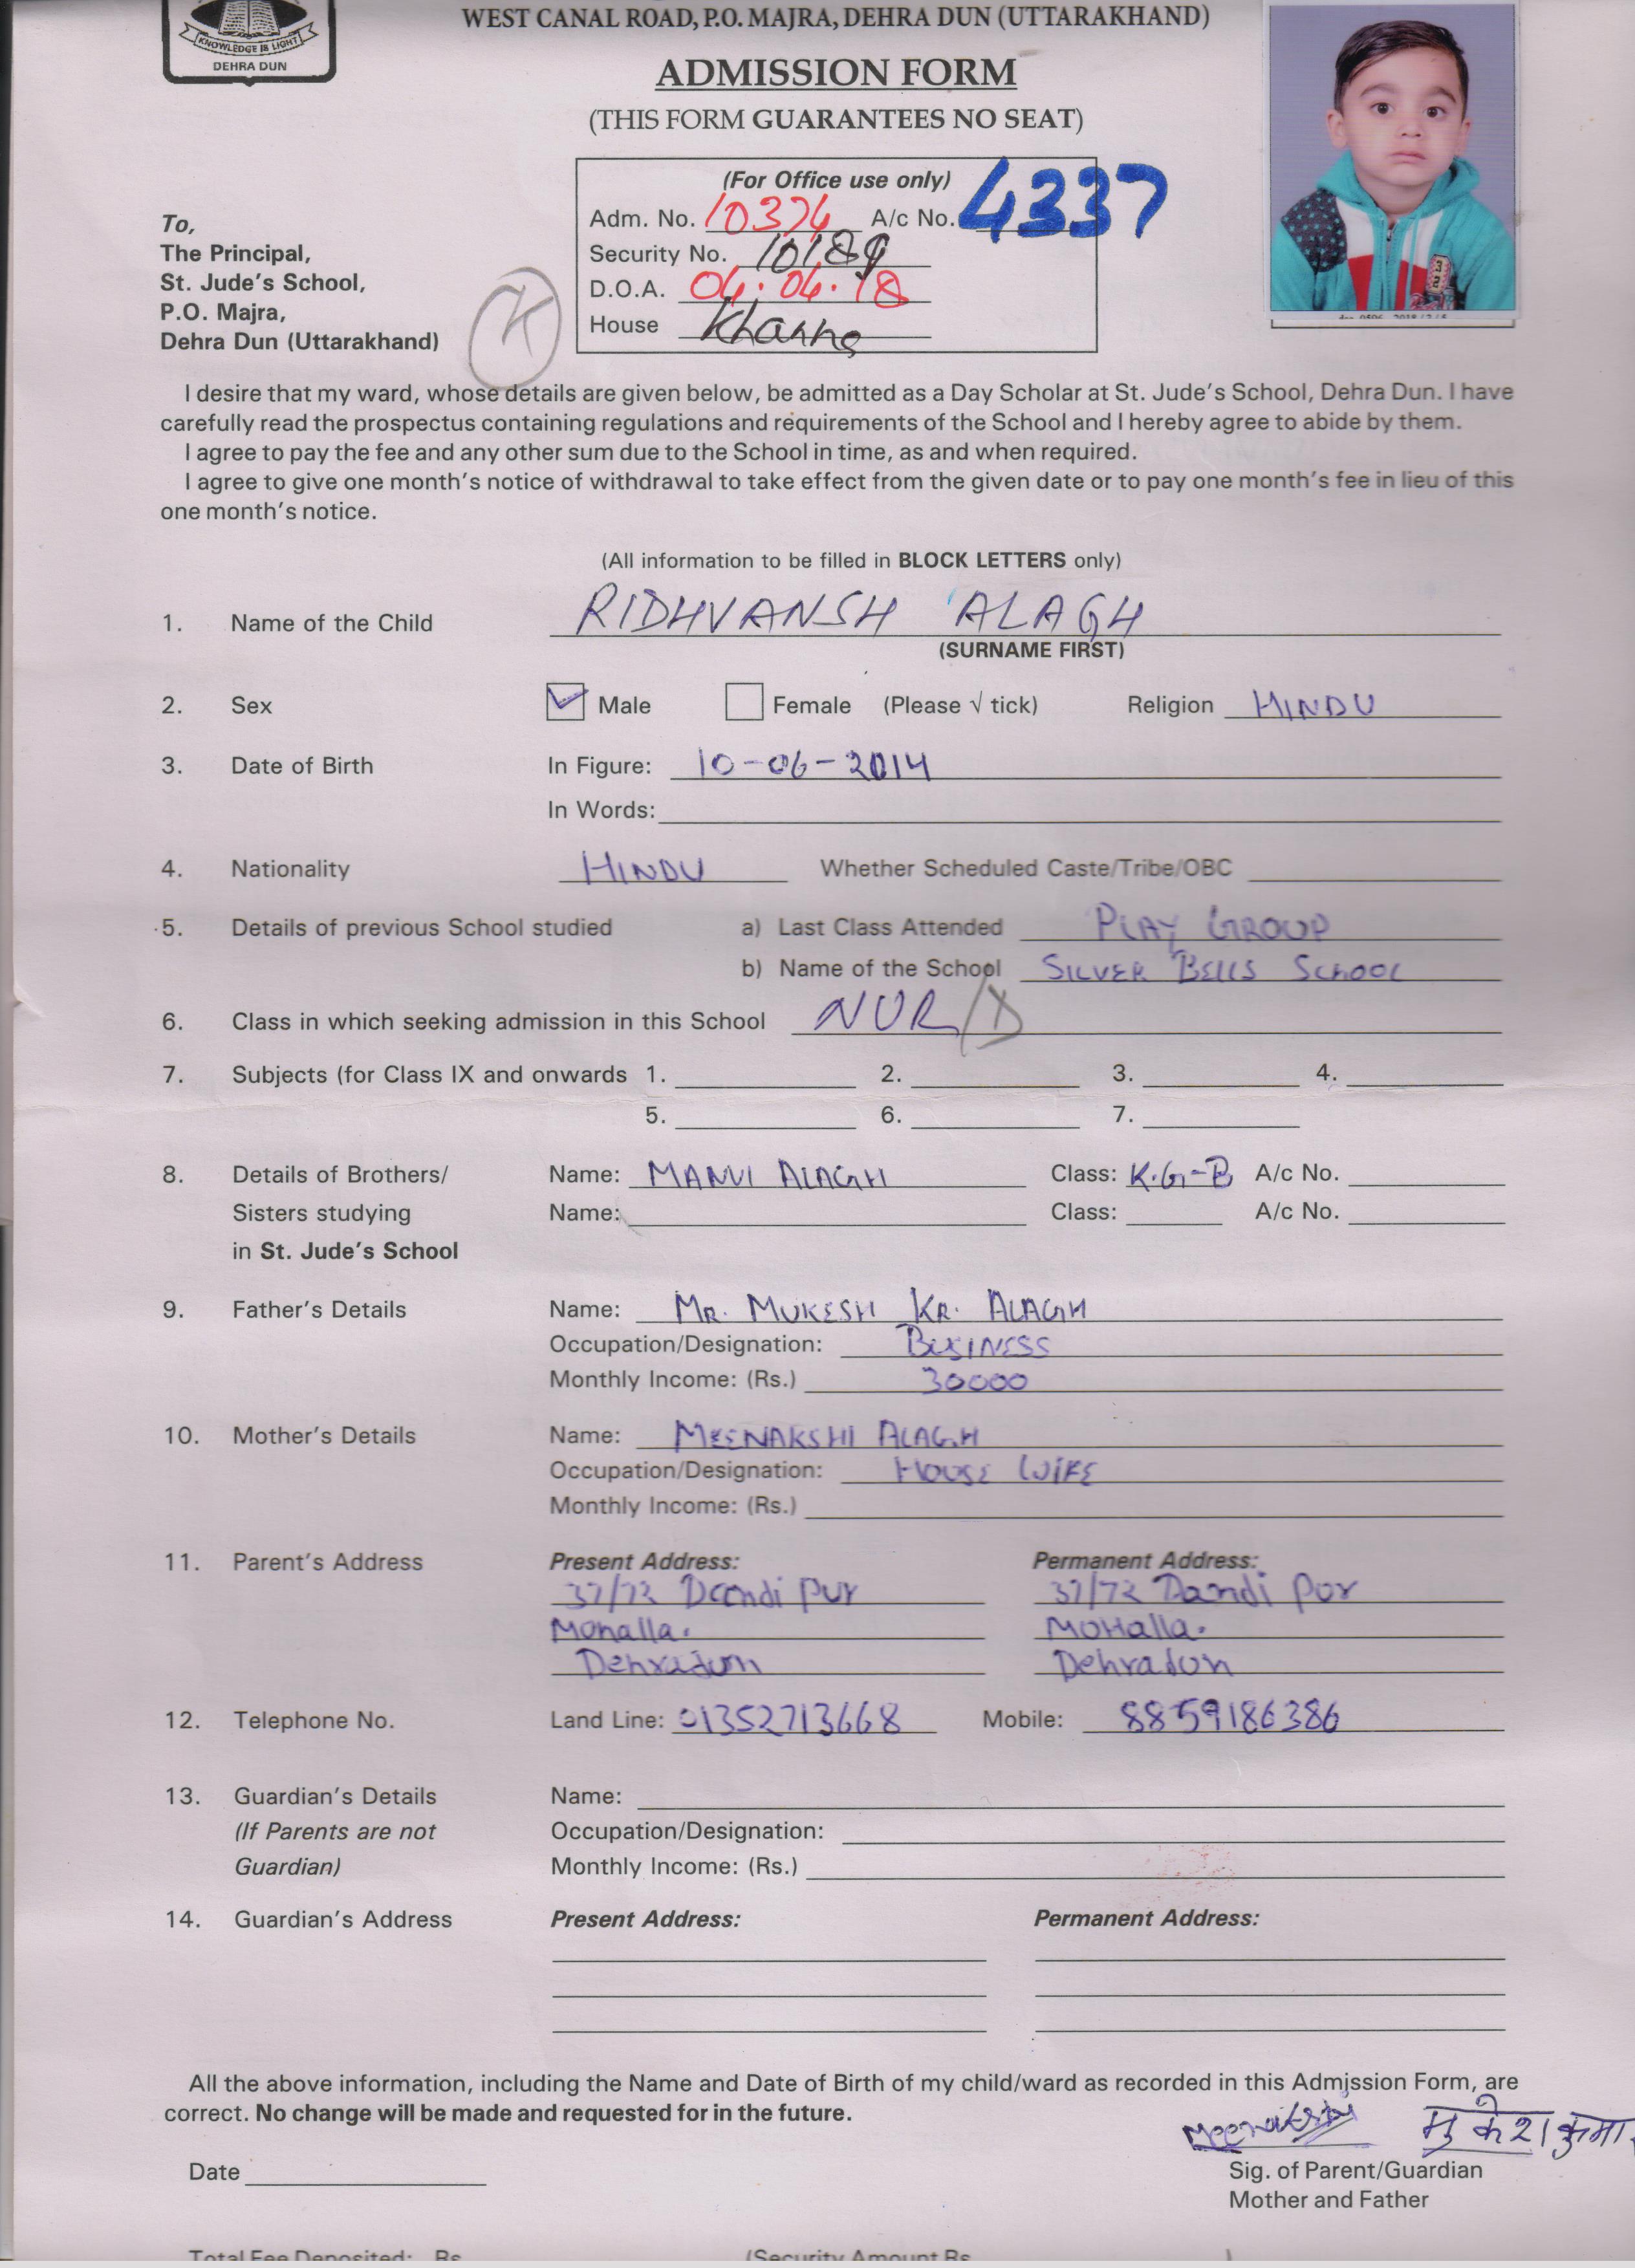 KNOWLEDGE IS LIGHT
DEHRA DUN
WEST CANAL ROAD, P.O. MAJRA, DEHRA DUN (UTTARAKHAND)
ADMISSION FORM
(THIS FORM GUARANTEES NO SEAT)
(For Office use only)
Adm. No. 10374 A/c No. 4337
Security No. 10189
D.O.A. 04.04.18
House Khanna
K
To,
The Principal,
St. Jude's School,
P.O. Majra,
Dehra Dun (Uttarakhand)
I desire that my ward, whose details are given below, be admitted as a Day Scholar at St. Jude's School, Dehra Dun. I have
carefully read the prospectus containing regulations and requirements of the School and I hereby agree to abide by them.
I agree to pay the fee and any other sum due to the School in time, as and when required.
I agree to give one month's notice of withdrawal to take effect from the given date or to pay one month's fee in lieu of this
one month's notice.
(All information to be filled in BLOCK LETTERS only)
1. Name of the Child RIDHVANSH ALAGH
(SURNAME FIRST)
2. Sex Male Female (Please √ tick) Religion HINDU
3. Date of Birth In Figure: 10-06-2014
In Words:
4. Nationality HINDU Whether Scheduled Caste/Tribe/OBC
5. Details of previous School studied a) Last Class Attended PLAY GROUP
b) Name of the School SILVER BELLS SCHOOL
6. Class in which seeking admission in this School NUR/D
7. Subjects (for Class IX and onwards 1. 2. 3. 4.
5. 6. 7.
8. Details of Brothers/ Name: MANVI ALAGH Class: K.G-B A/c No.
Sisters studying Name: Class: A/c No.
in St. Jude's School
9. Father's Details Name: MR. MUKESH KR. ALAGH
Occupation/Designation: BUSINESS
Monthly Income: (Rs.) 30000
10. Mother's Details Name: MEENAKSHI ALAGH
Occupation/Designation: HOUSE WIFE
Monthly Income: (Rs.)
11. Parent's Address Present Address: Permanent Address:
37/72 Dandi pur 37/72 Dandi pur
Mohalla. MOHalla.
Dehradun Dehradun
12. Telephone No. Land Line: 01352713668 Mobile: 8859186386
13. Guardian's Details Name:
(If Parents are not Occupation/Designation:
Guardian) Monthly Income: (Rs.)
14. Guardian's Address Present Address: Permanent Address:
All the above information, including the Name and Date of Birth of my child/ward as recorded in this Admission Form, are
correct. No change will be made and requested for in the future.
Meenakshi मुकेश कुमा
Date Sig. of Parent/Guardian
Mother and Father
Total Fee Deposited: Rs (Security Amount Rs